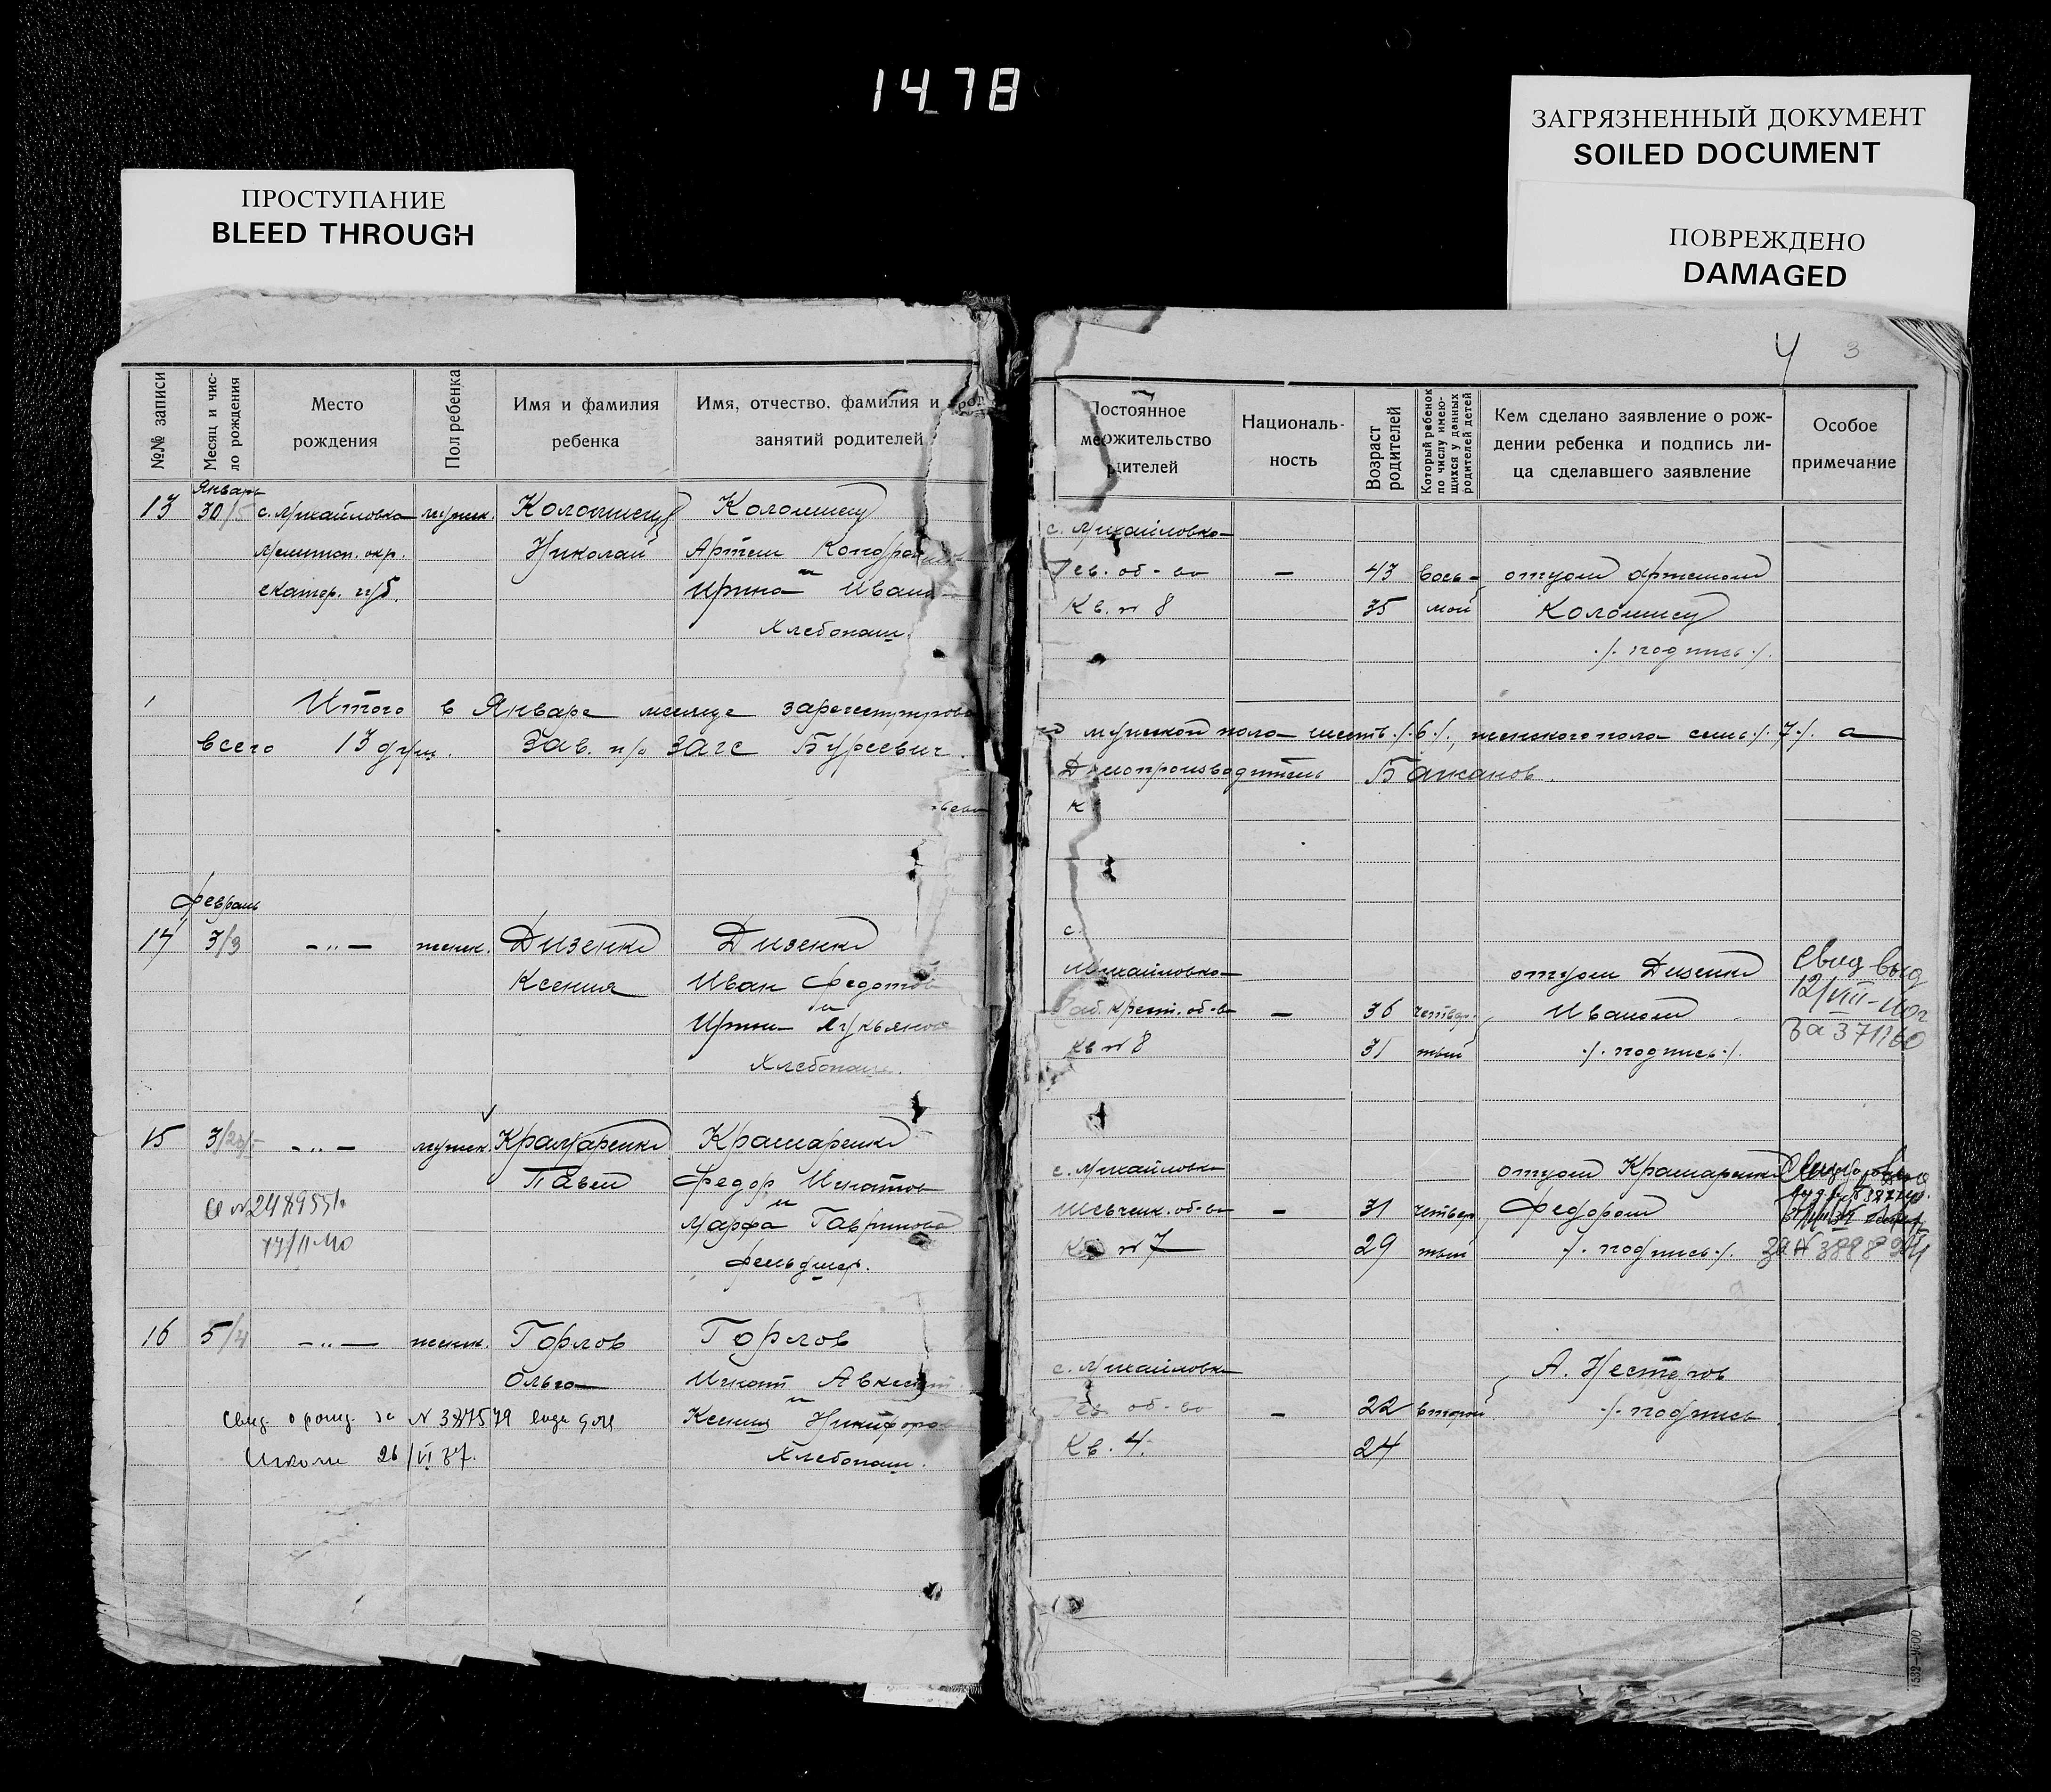 1478
ПРОСТУПАНИЕ
BLEED THROUGH
ЗАГРЯЗНЕННЫЙ ДОКУМЕНТ
SOILED DOCUMENT
ПОВРЕЖДЕНО
DAMAGED
№№ записи
Месяц и чис-
ло рождения
Место
рождения
Пол ребенка
Имя и фамилия
ребенка
Имя, отчество, фамилия и
занятий родителей
Январь
13 30/5 с. Михайловка мужск. Коломиец Коломиец
Мелитоп. окр. Николай Артем Кондрат
и
екатер. губ. Ирина Иван
Хлебопаш.
Итого в Январе месяце зарегестрирова
всего 13 душ. Зав. п/о Загс Буреевич
февраль
14 3/3 — " — женск. Дизенко Дизенко
Ксения Иван Федотов
и
Ирина Лукьянов
Хлебопаш.
15 3/ — " — мужск. Крамаренко Крамаренко
Павел Федор Игнатов
и
Марфа Гаврилова
фельдшер.
16 5/4 — " — женск. Горлов Горлов
Ольга Игнат
и
Свид. о рожд. за N 387579 Ксения Никифоро
школы 26/VI 37. Хлебопаш.
4 3
Постоянное
местожительство
родителей
Националь-
ность
Возраст
родителей
Который ребенок
по числу имею-
щихся у данных
родителей детей
Кем сделано заявление о рож-
дении ребенка и подпись ли-
ца сделавшего заявление
Особое
примечание
с. Михайловка
об-во — 43 вось- отцом Артемом
Кв. № 8 35 мой Коломиец
./. подпись ./.
мужской пола шесть ./.6./., женского пола семь ./.7./. а
Делопроизводитель Балканов.
к
с.
Михайловка отцом Дизенко Свид выд
крест. об-во — 36 четвер- Иваном 12/VIII-40г
Кв № 8 31 тый ./. подпись ./. За 371160
с. Михайловка отцом Крамаренко
Шевченк. об-во — 31 четвер- Федором
№ 7 29 тый ./. подпись ./.
с. Михайловка А. Нестеров
об-во — 22 второй ./. подпись
Кв. 4. 24